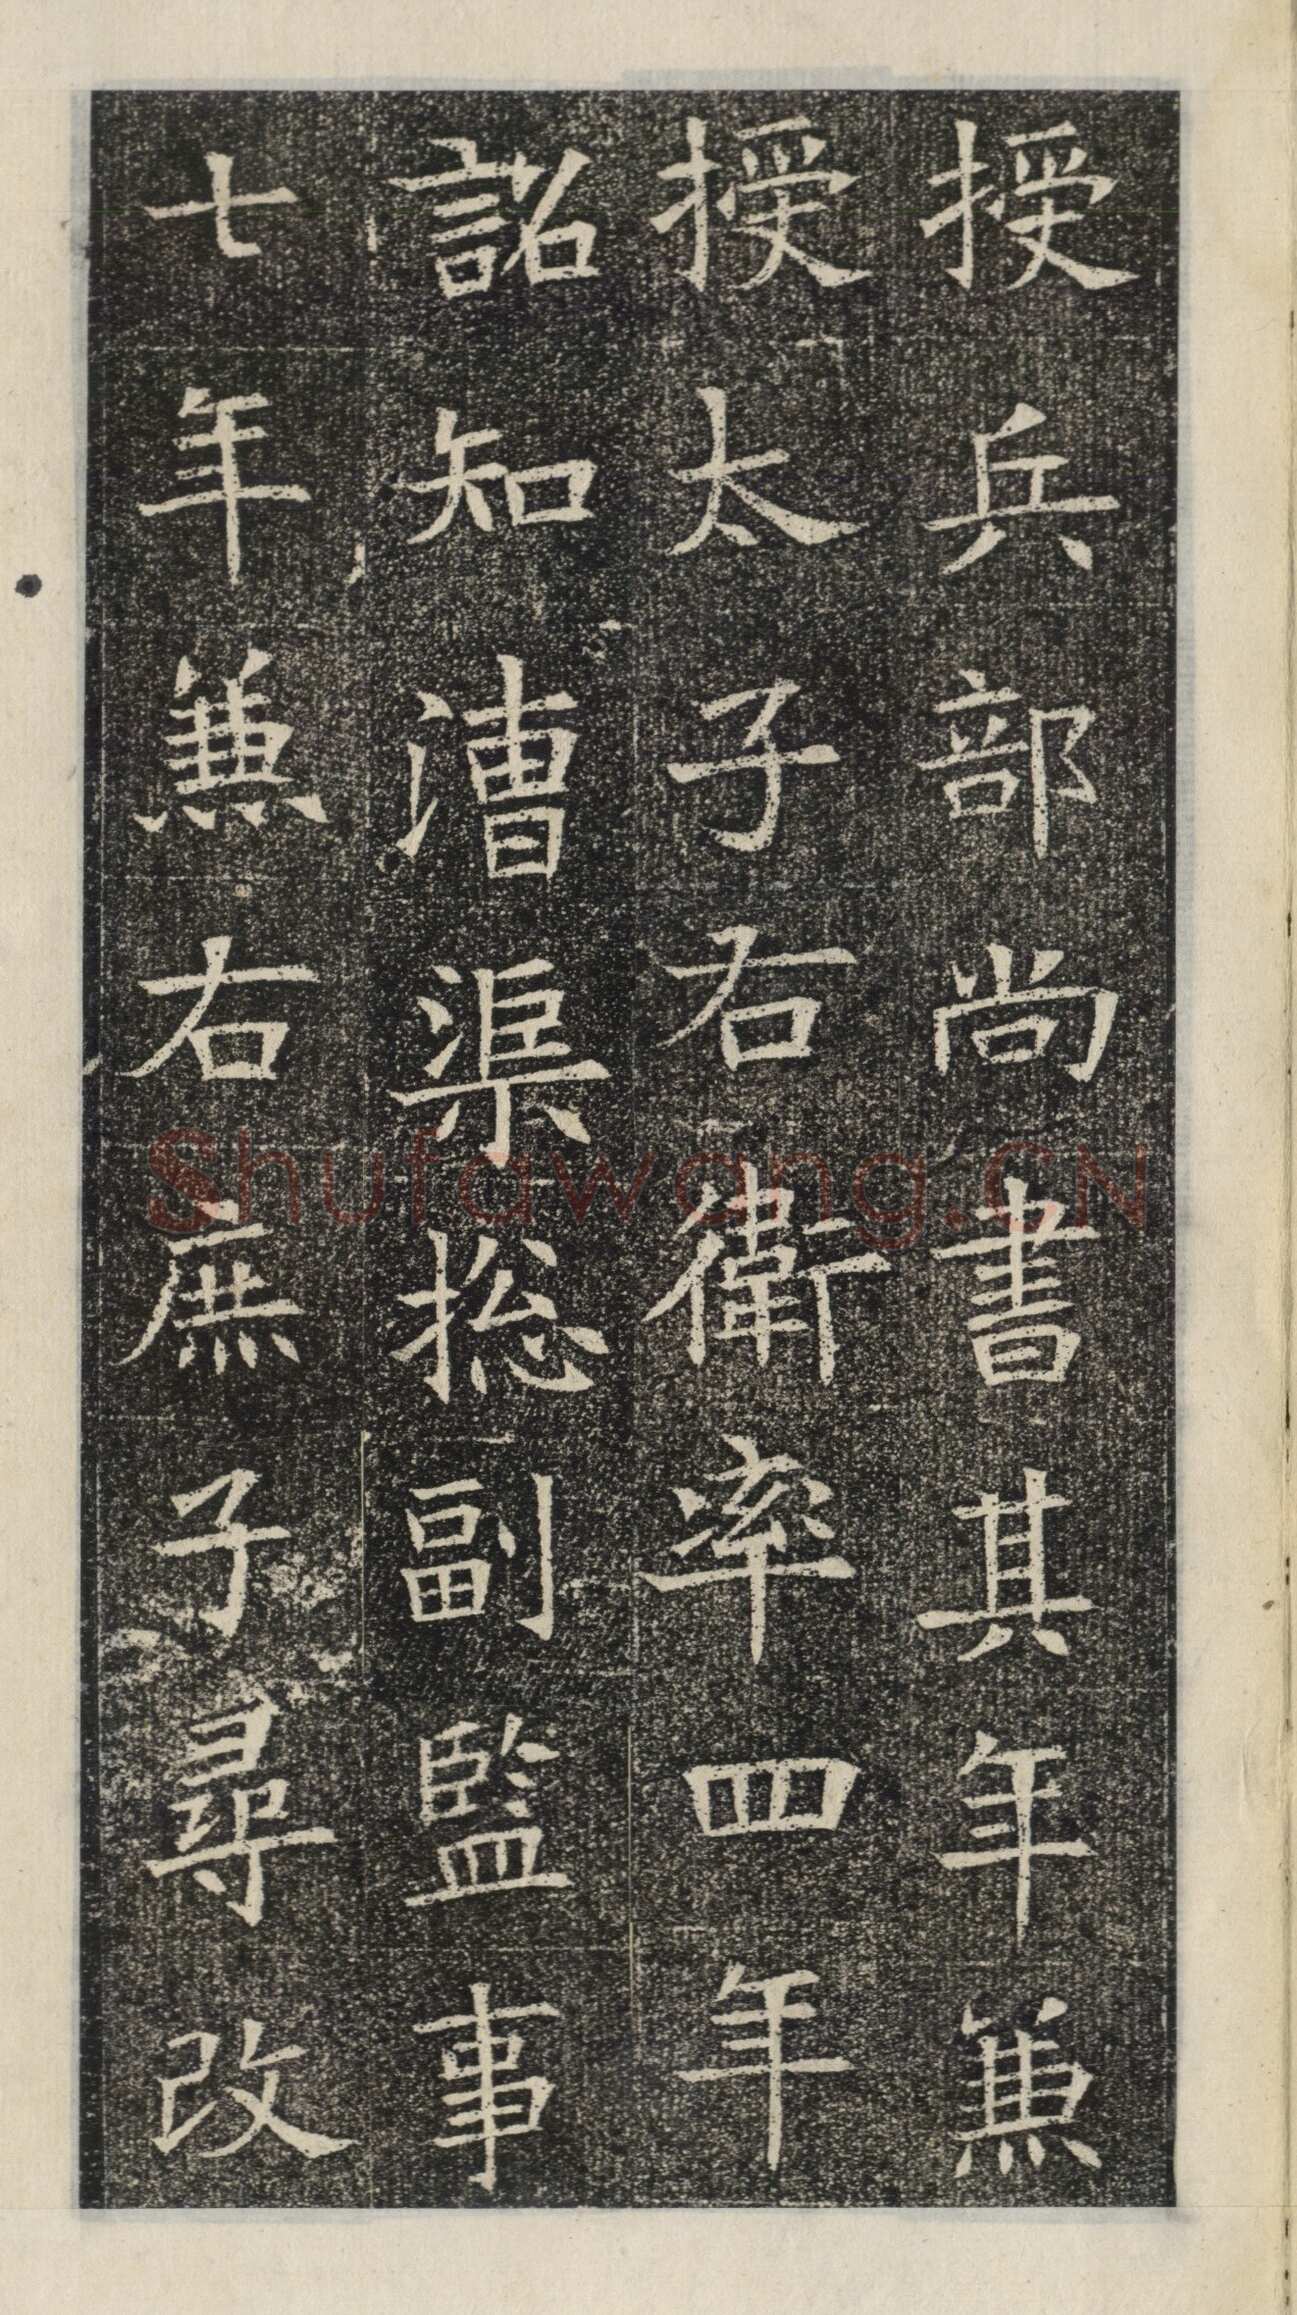 授兵部尚書其年兼
授太子右衛率四年
詔知漕渠捴副監事
七年兼右庶子尋改
Shufawang.CN